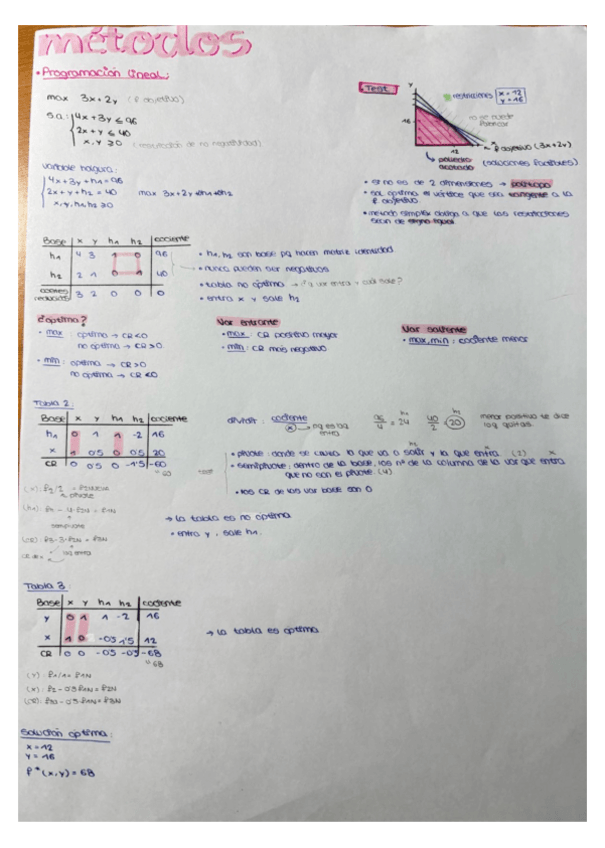 métodos
• Programación lineal:
max 3x+2y (f objetivo)
s.a: 4x+3y ≤ 96
2x+y ≤ 40
x, y ≥ 0 (restricción de no negatividad)
Test
y
restricciones x=12
y=16
16
12
f objetivo (3x+2y)
poliedro acotado (soluciones factibles)
• si no es de 2 dimensiones → politopo
• sol optima es vértice que sea tangente a la
f objetivo
• método simplex obliga a que las restricciones
sean de signo igual
variable holgura:
4x+3y+h1=96
2x+y+h2=40 max 3x+2y+0h1+0h2
x,y,h1,h2 ≥0
Base x y h1 h2 cociente
h1 4 3 1 0 96
h2 2 1 0 1 40
costes reducidos 3 2 0 0 0
• h1, h2 son base pq hacen matriz identidad
• nunca pueden ser negativos
• tabla no óptima → ¿q var entra y cuál sale?
• entra x y sale h2
¿óptima?
• max: óptima → CR<0
no óptima → CR>0
• min: óptima → CR>0
no óptima → CR<0
Var entrante
• max: CR positivo mayor
• min: CR más negativo
Var saliente
• max, min: cociente menor
Tabla 2:
Base x y h1 h2 cociente
h1 0 1 1 -2 16
x 1 0'5 0 0'5 20
CR 0 0'5 0 -1'5 -60
60
dividir: cociente
x → pq es la q entra
96/4 = 24 h1
40/2 = 20 h2
menor positivo te dice
la q quitas
• pivote: donde se cruza la que va a salir y la que entra (2)
h2
x
• semipivote: dentro de la base, los nº de la columna de la var que entra
que no son el pivote (4)
• los CR de las var base son 0
(x): F2/2 = F2Nueva
pivote
(h1): F1 - 4·F2N = F1N
semipivote
(CR): F3-3·F2N = F3N
CR de la q entra
→ la tabla es no optima
• entra y, sale h1
Tabla 3:
Base x y h1 h2 cociente
y 0 1 1 -2 16
x 1 0 -0'5 1'5 12
CR 0 0 -0'5 -0'5 -68
68
→ la tabla es optima
(y): F1/1= F1N
(x): F2 - 0'5·F1N = F2N
(CR): F3 - 0'5·F1N = F3N
Solución optima:
x = 12
y = 16
f*(x,y) = 68